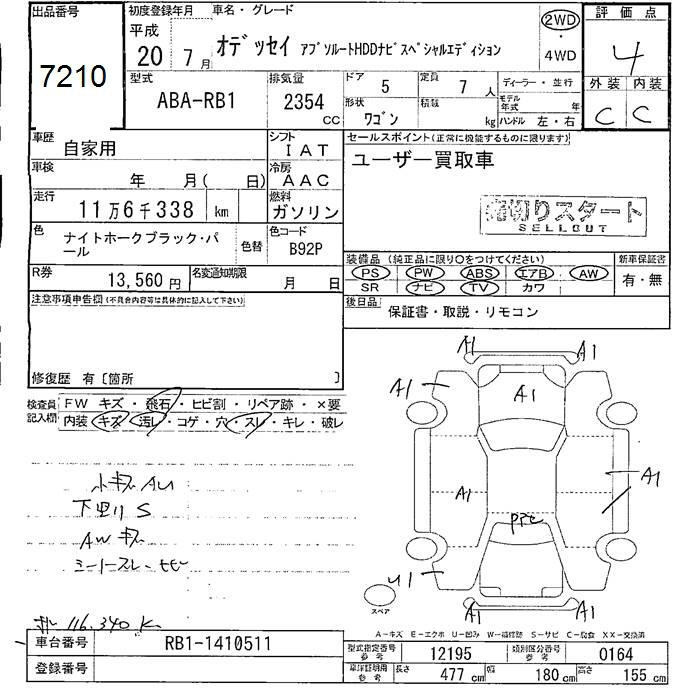 出品番号
7210
初度登録年月 車名・グレード
平成
20 7月
オデッセイ アブソルートHDDナビスペシャルエディション
2WD
・
4WD
評価点
4
外装 内装
C C
型式
ABA-RB1
排気量
2354
CC
ドア
5
定員
7 人
形状
ワゴン
積載
kg
ディーラー・並行
モデル年式 年
ハンドル 左・右
車歴
自家用
シフト
IAT
車検
年 月( 日)
冷房
AAC
走行
11万6千338 km
燃料
ガソリン
色
ナイトホークブラック・パール
色替
色コード
B92P
R券
13,560 円
名変通知期限
月 日
セールスポイント(正常に機能するものに限ります)
ユーザー買取車
売切りスタート
SELLOUT
装備品(純正品に限り〇をつけてください)
PS PW ABS エアB AW
SR ナビ TV カワ
新車保証書
有・無
後日品
保証書・取説・リモコン
注意事項申告欄(不具合内容等は具体的に記入して下さい)
修復歴 有〔箇所 〕
検査員記入欄
FW キズ・飛石・ヒビ割・リペア跡・×要
内装 キズ・汚レ・コゲ・穴・スレ・キレ・破レ
小キズ AU
下廻り S
AW キズ
A1 A1
A1
A1
A1
A1
U1
A1 A1
スペア
A-キズ E-エクボ U-凹み W-補修跡 S-サビ C-腐食 XX-交換済
116.340 K
車台番号
RB1-1410511
登録番号
型式指定番号 参考
12195
類別区分番号 参考
0164
車庫証明用 参考
長さ 477 cm
幅 180 cm
高さ 155 cm